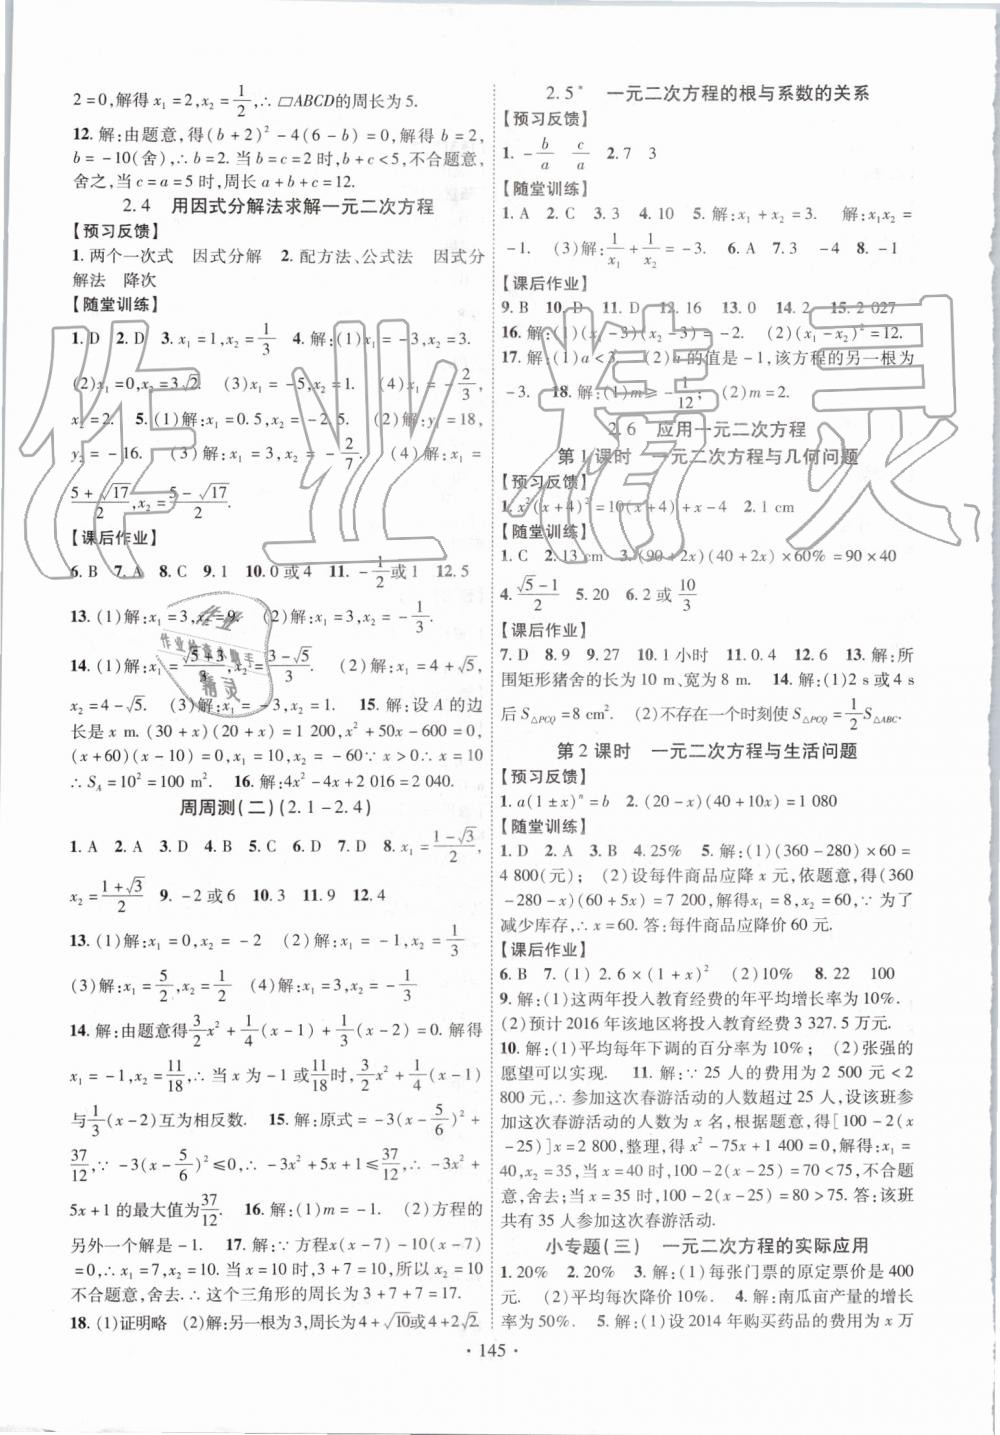 2=0,解得 x₁=2,x₂=1/2,∴□ABCD的周长为5.
12.解:由题意,得(b+2)²-4(6-b)=0,解得 b=2,
b=-10(舍),∴b=2. 当 b=c=2时,b+c<5,不合题意,
舍之,当 c=a=5时,周长 a+b+c=12.
2.4 用因式分解法求解一元二次方程
【预习反馈】
1.两个一次式 因式分解 2.配方法、公式法 因式分
解法 降次
【随堂训练】
1.D 2.D 3.x₁=1,x₂=1/3 4.解:(1)x₁=-3,x₂=3.
(2)x₁=0,x₂=3√2. (3)x₁=-5,x₂=1. (4)x₁=-2/3,
x₂=2. 5.(1)解:x₁=0.5,x₂=-2.5. (2)解:y₁=18,
y₂=-16. (3)解:x₁=3,x₂=-2/7. (4)解:x₁=
(5+√17)/2,x₂=(5-√17)/2.
【课后作业】
6.B 7.A 8.C 9.1 10.0或4 11.-1/2或1 12.5
13.(1)解:x₁=3,x₂=9. (2)解:x₁=3,x₂=-1/3.
14.(1)解:x₁=(√5+3)/3,x₂=(3-√5)/3. (2)解:x₁=4+√5,
x₂=4-√5. (3)解:x₁=2,x₂=1. 15.解:设 A 的边
长是 x m. (30+x)(20+x)=1 200,x²+50x-600=0,
(x+60)(x-10)=0,x₁=-60,x₂=10. ∵x>0∴x=10.
∴S_A=10²=100 m². 16.解:4x²-4x+2 016=2 040.
周周测(二)(2.1-2.4)
1.A 2.A 3.D 4.B 5.C 6.D 7.D 8.x₁=(1-√3)/2,
x₂=(1+√3)/2 9.-2或6 10.3 11.9 12.4
13.(1)解:x₁=0,x₂=-2 (2)解:x₁=1,x₂=-1/3
(3)解:x₁=5/2,x₂=1/2 (4)解:x₁=3,x₂=-1/3
14.解:由题意得3/2x²+1/4(x-1)+1/3(x-2)=0. 解得
x₁=-1,x₂=11/18,∴当x=-1或11/18时,3/2x²+1/4(x-1)
与1/3(x-2)互为相反数. 15.解:原式=-3(x-5/6)²+
37/12,∵-3(x-5/6)²≤0,∴-3x²+5x+1≤37/12,∴-3x²+
5x+1的最大值为37/12. 16.解:(1)m=-1. (2)方程的
另外一个解是-1. 17.解:∵方程x(x-7)-10(x-7)
=0,∴x₁=7,x₂=10. ∵3+7=10,所以 x=10不合
题意,舍去. ∴这个三角形的周长为3+7+7=17.
18.(1)证明略 (2)解:另一根为3,周长为4+√10或4+2√2.
2.5* 一元二次方程的根与系数的关系
【预习反馈】
1.-b/a c/a 2.7 3
【随堂训练】
1.A 2.C 3.3 4.10 5.解:x₁+x₂=3. 解:x₁x₂=
-1. (3)解:1/x₁+1/x₂=-3. 6.A 7.3 -4 8.-1
【课后作业】
9.B 10.D 11.D 12.16 13.0 14.2 15.2 027
16.解:(1)(x₁-3)(x₂-3)=-2. (2)(x₁-x₂)²=12.
17.解:(1)a<3. (2)a的值是-1,该方程的另一根为
-3. 18.解:(1)m≥-1/12; (2)m=2.
2.6 应用一元二次方程
第1课时 一元二次方程与几何问题
【预习反馈】
1.x²(x+4)²=10(x+4)+x-4 2.1 cm
【随堂训练】
1.C 2.13 cm 3.(90+2x)(40+2x)×60%=90×40
4.(√5-1)/2 5.20 6.2或10/3
【课后作业】
7.D 8.9 9.27 10.1小时 11.0.4 12.6 13.解:所
围矩形猪舍的长为10 m、宽为8 m. 14.解:(1)2 s或4 s
后S△PCQ=8 cm². (2)不存在一个时刻使S△PCQ=1/2S△ABC.
第2课时 一元二次方程与生活问题
【预习反馈】
1.a(1±x)ⁿ=b 2.(20-x)(40+10x)=1 080
【随堂训练】
1.D 2.A 3.B 4.25% 5.解:(1)(360-280)×60=
4 800(元); (2)设每件商品应降x元,依题意,得(360
-280-x)(60+5x)=7 200,解得x₁=8,x₂=60,∵为了
减少库存,∴x=60. 答:每件商品应降价60元.
【课后作业】
6.B 7.(1)2.6×(1+x)² (2)10% 8.22 100
9.解:(1)这两年投入教育经费的年平均增长率为10%.
(2)预计2016年该地区将投入教育经费3 327.5万元.
10.解:(1)平均每年下调的百分率为10%; (2)张强的
愿望可以实现. 11.解:∵25人的费用为2 500元<2
800元,∴参加这次春游活动的人数超过25人,设该班参
加这次春游活动的人数为x名,根据题意,得[100-2(x
-25)]x=2 800,整理,得x²-75x+1 400=0,解得:x₁=
40,x₂=35,当x=40时,100-2(x-25)=70<75,不合题
意,舍去;当x=35时,100-2(x-25)=80>75. 答:该班
共有35人参加这次春游活动.
小专题(三) 一元二次方程的实际应用
1.20% 2.20% 3.解:(1)每张门票的原定票价是400
元. (2)平均每次降价10%. 4.解:南瓜亩产量的增长
率为50%. 5.解:(1)设2014年购买药品的费用为x万
· 145 ·
作业精灵
作业
作业检查小助手
精灵